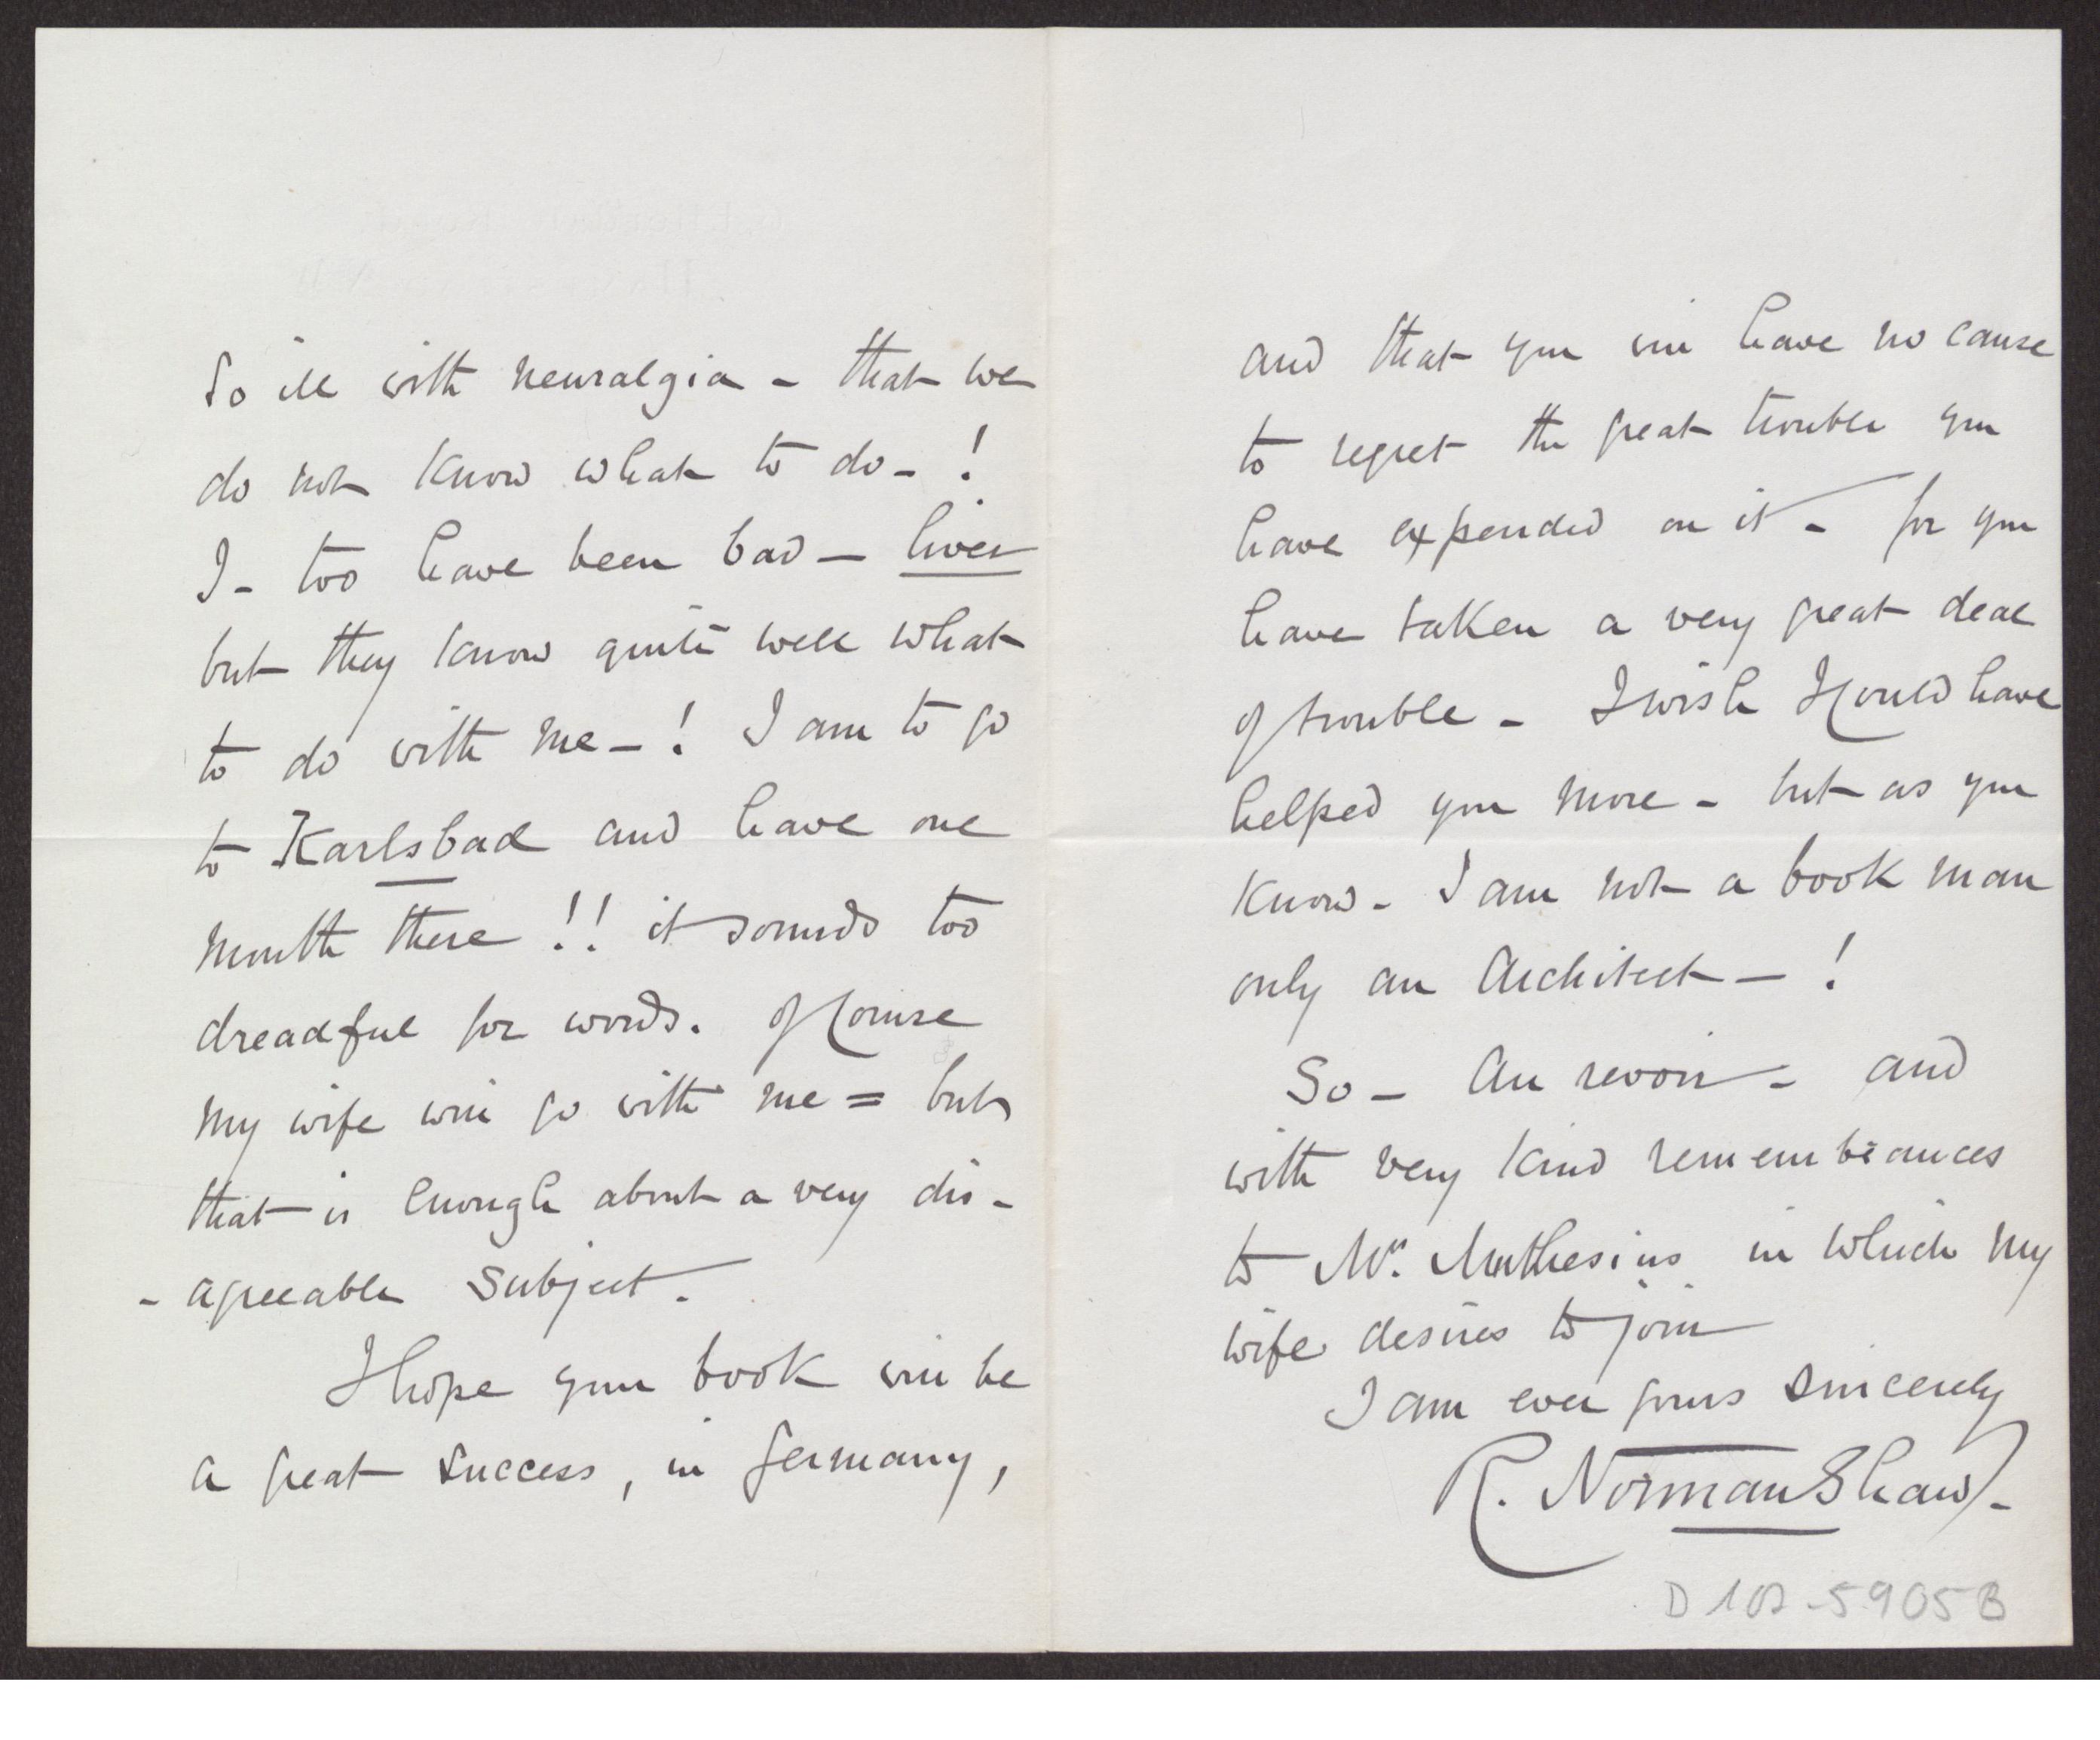 So ill with neuralgia - that we
do not know what to do - !
I - too have been bad - liver
but they know quite well what
to do with me - ! I am to go
to Karlsbad and have one
month there !! it sounds too
dreadful for words. Of course
my wife will go with me = but
that is enough about a very dis-
- agreeable subject.
I hope your book will be
a great success, in Germany,
and that you will have no cause
to regret the great trouble you
have expended on it - for you
have taken a very great deal
of trouble - I wish I could have
helped you more - but as you
know - I am not a book man
only an Architect - !
So - Au revoir - and
with very kind remembrances
to Mrs. Muthesius in which my
wife desires to join
I am ever yours sincerely
R. Norman Shaw -
D 102-5905B